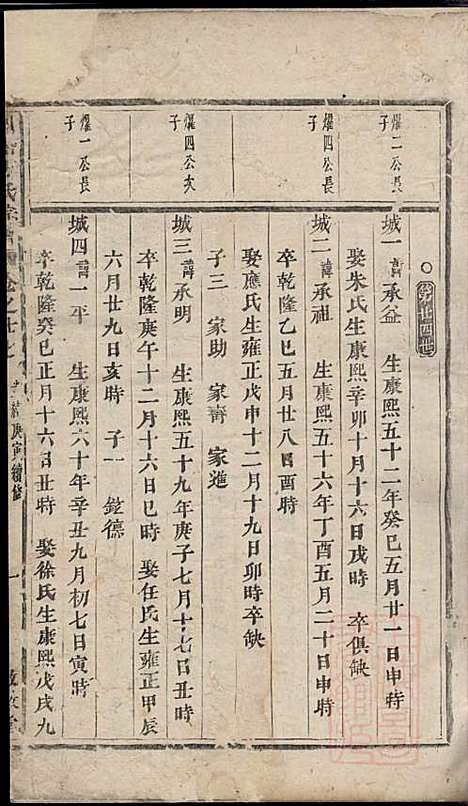 第廿四世
燿二公長子
城一 諱承益 生康熙五十二年癸巳五月廿一日申時
娶朱氏生康熙辛卯十月十六日戌時 卒俱缺
燿四公長子
城二 諱承祖 生康熙五十六年丁酉五月二十日申時
卒乾隆乙巳五月廿八日酉時
娶應氏生雍正戊申十二月十九日卯時卒缺
子三 家助 家齊 家進
燿四公次子
城三 諱承明 生康熙五十九年庚子七月十七日丑時
卒乾隆庚午十二月十六日巳時 娶任氏生雍正甲辰
六月廿九日亥時 子一 鎹德
燿一公長子
城四 諱一平 生康熙六十年辛丑九月初七日寅時
卒乾隆癸巳正月十六日丑時 娶徐氏生康熙戊戌九
氏宗譜 卷之廿七 光緒庚寅續修 一 敦敘堂